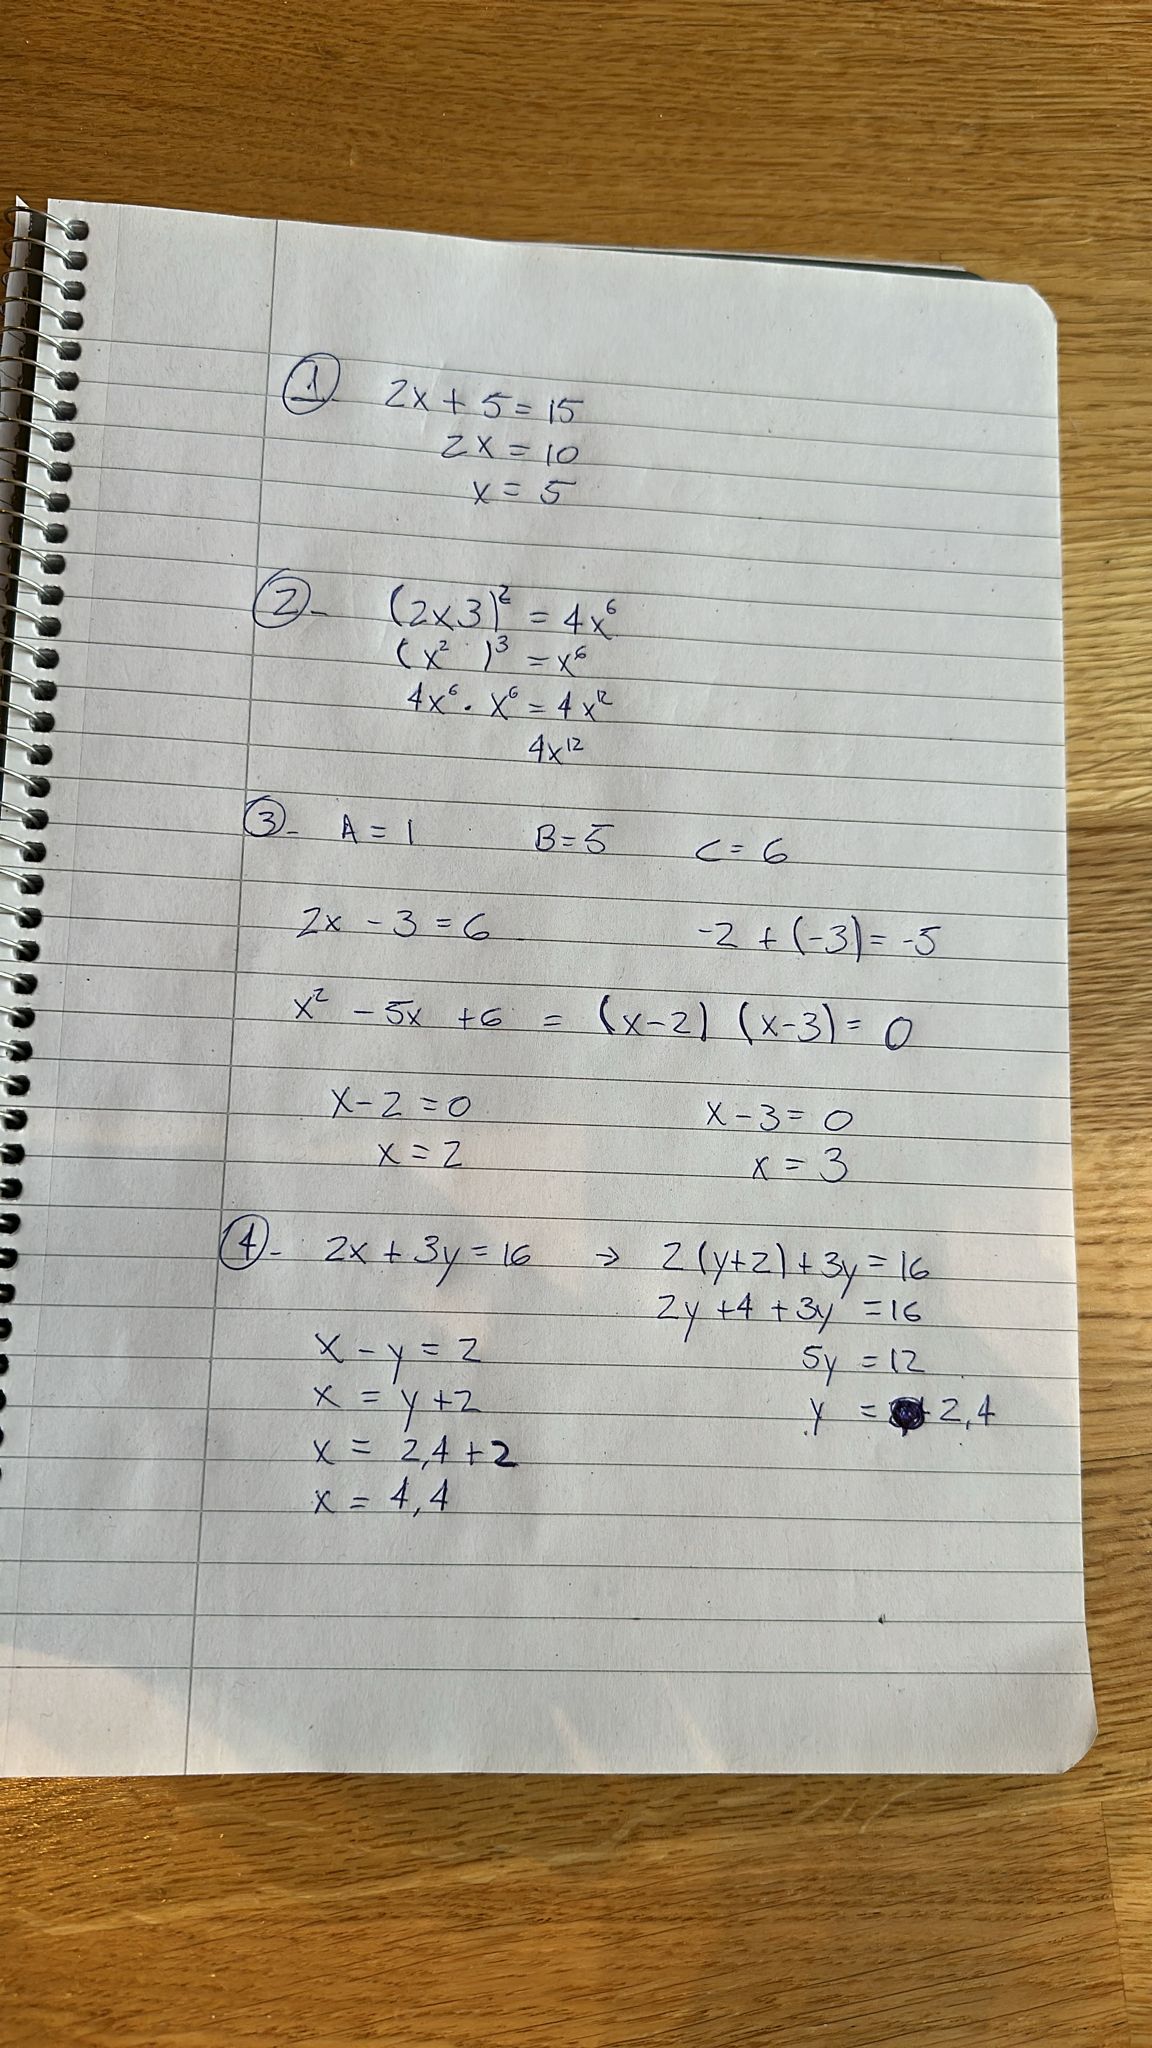 1 2x + 5 = 15
2x = 10
x = 5
2- (2x3)² = 4x⁶
(x² )³ = x⁶
4x⁶ · x⁶ = 4x¹²
4x¹²
3- A = 1 B = 5 C = 6
2x - 3 = 6 -2 + (-3) = -5
x² - 5x + 6 = (x-2) (x-3) = 0
x - 2 = 0 x - 3 = 0
x = 2 x = 3
4- 2x + 3y = 16 → 2(y+2) + 3y = 16
2y + 4 + 3y = 16
x - y = 2 5y = 12
x = y + 2 y = 2,4
x = 2,4 + 2
x = 4,4